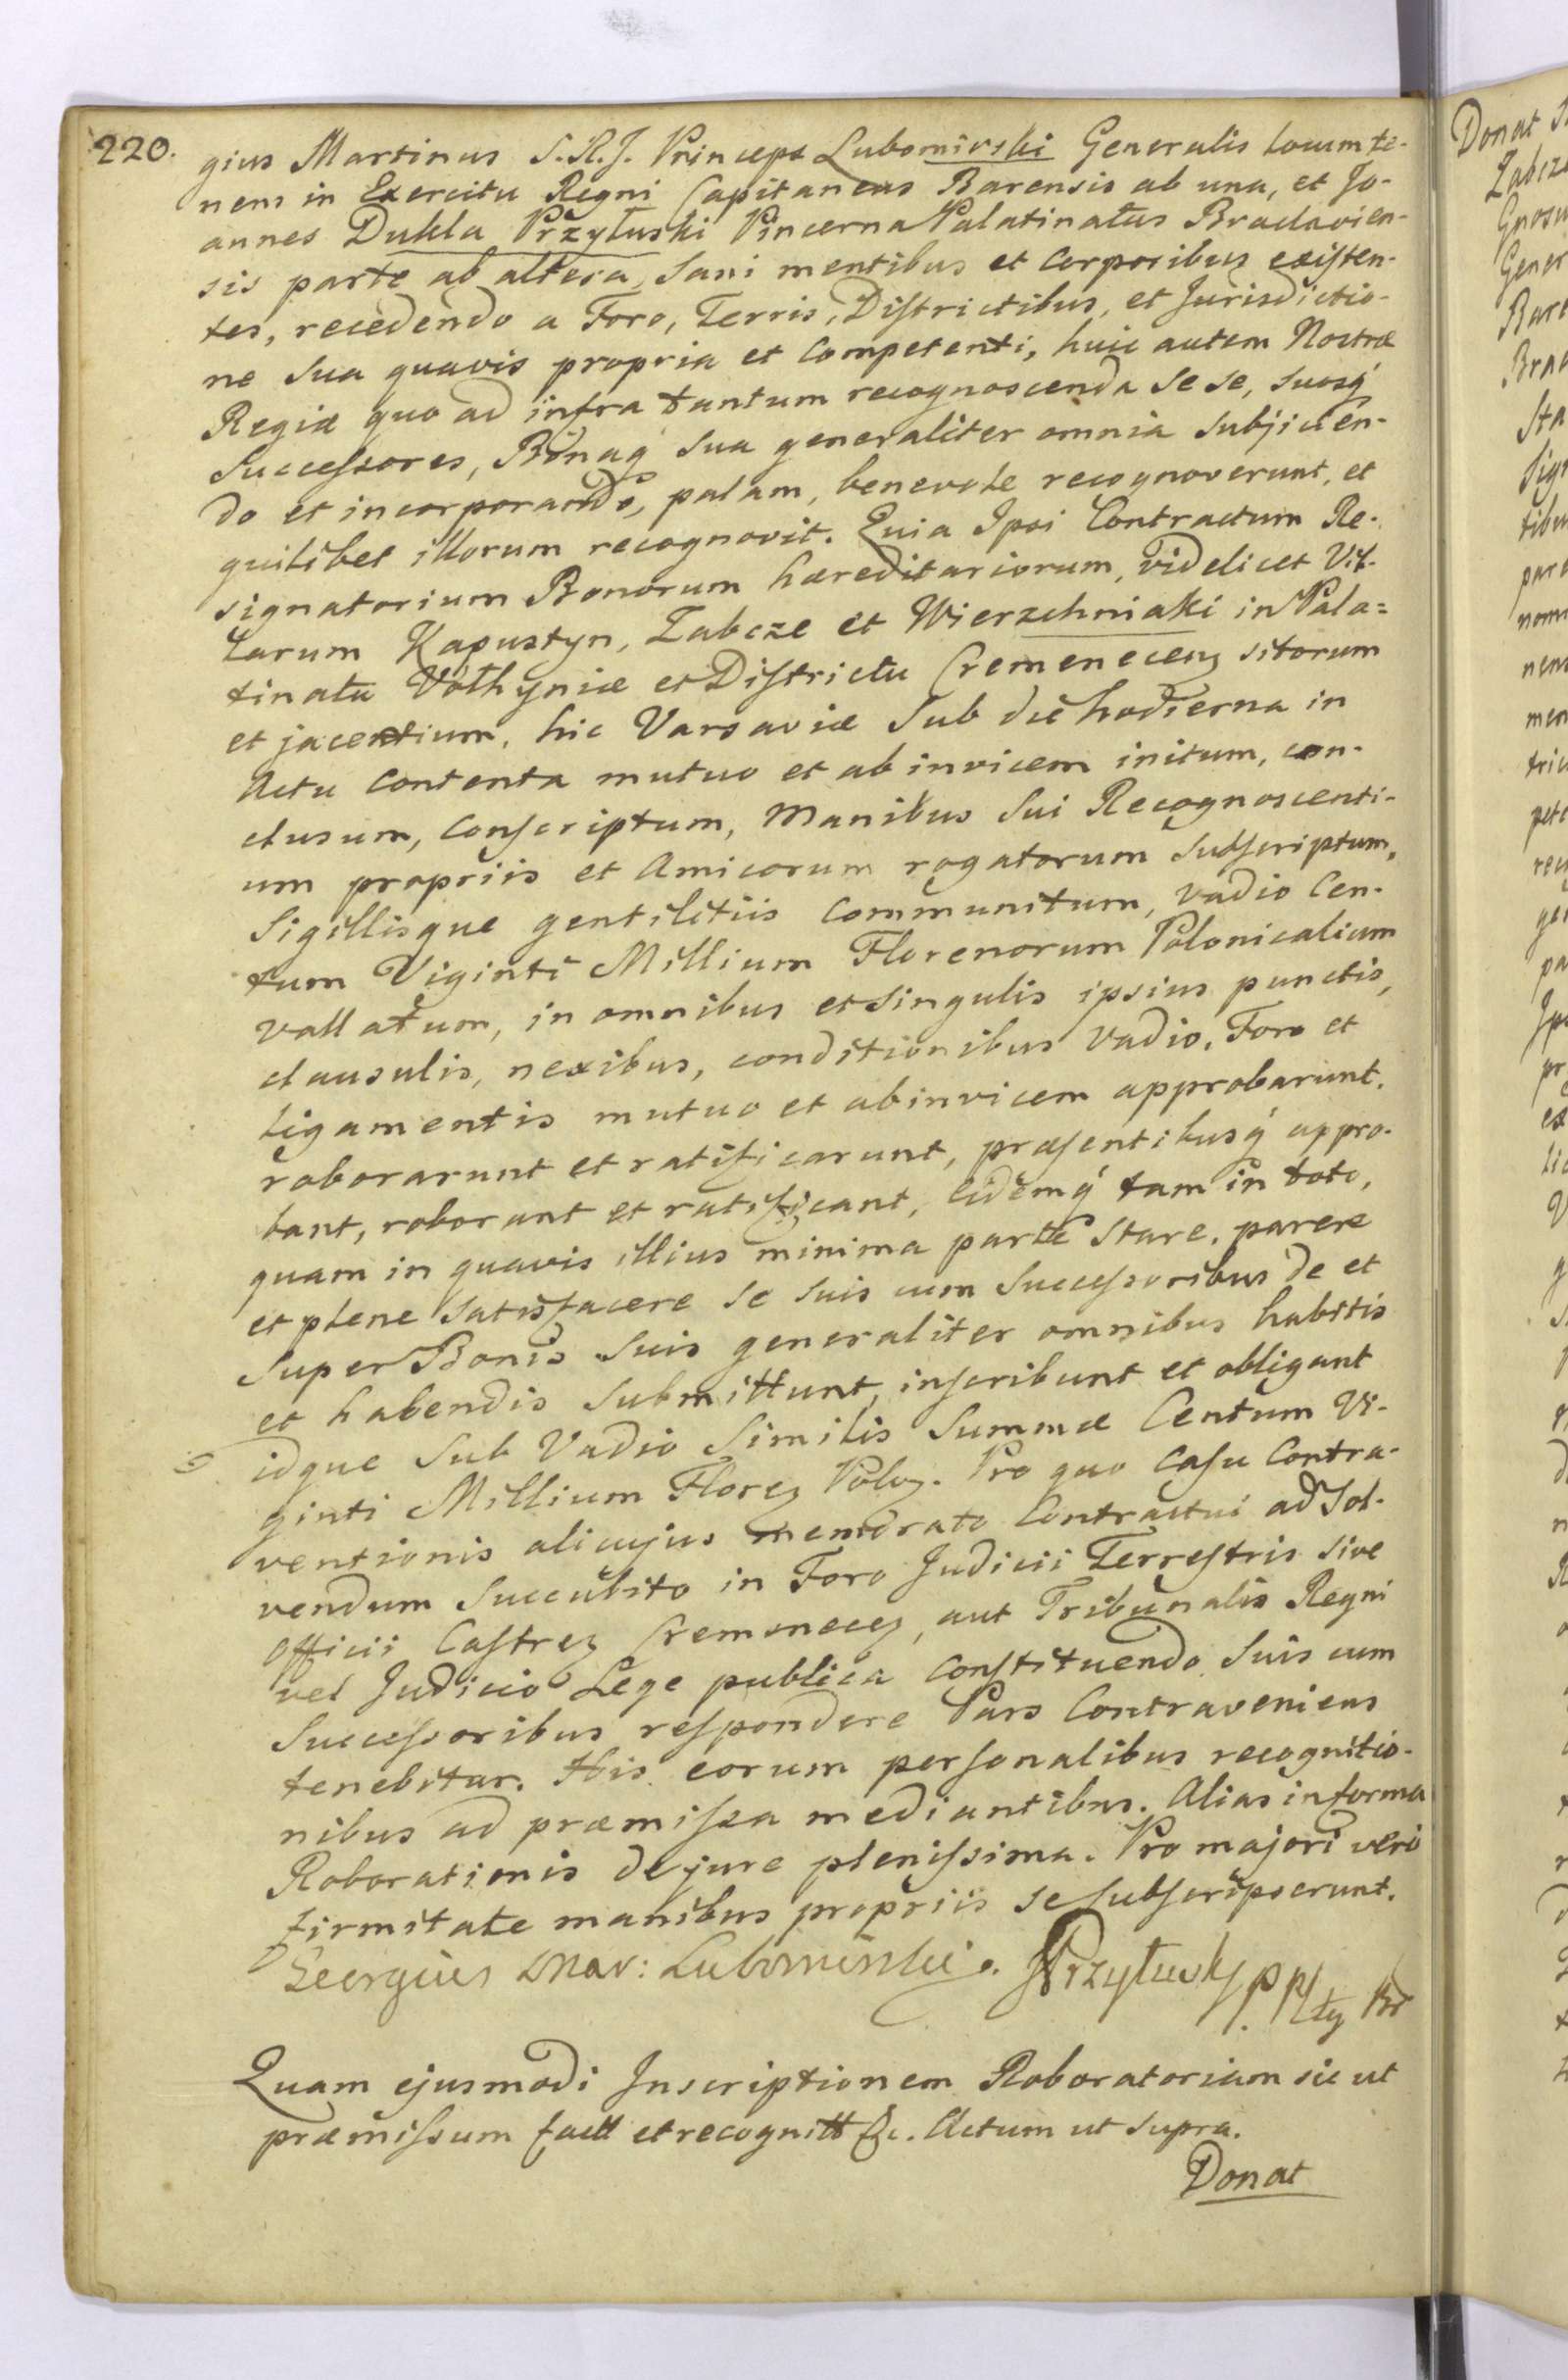 220.
gius Martinus S.R.J. Princeps Lubomirski Generalis Locumte-
nens in Exercitu Regni Capitaneus Barensis ab una, et Jo-
annes Dukla Przyłuski Pincerna Palatinatus Braclavien-
sis parte ab altera, Sani mentibus et Corporibus existen-
tes, recedendo a Foro, Terris, Districtibus, et Jurisdictio-
ne Sua quavis propria et Competenti, huic autem Nostræ
Regiæ quo ad infra tantum recognoscenda Se se, Suosq́
Successores, Bonaq́ Sua generaliter omnia Subjicien-
do et incorporando, palam, benevole recognoverunt, et
quilibet illorum recognovit. Quia Ipsi Contractum Re-
signatorium Bonorum hæreditariorum, videlicet Vil-
larum Kapustyn, Zabcze et Wierzchniaki in Pala-
tinatu Volhyniæ et Districtu Cremenecens sitorum
et jacentium, hic Varsaviæ Sub die hodierna in
Actu Contenta mutuo et ab invicem initum, con-
clusum, Conscriptum, Manibus Sui Recognoscenti-
um propriis et Amicorum rogatorum Subscriptum,
Sigillisque gentilitiis Communitum, Vadio Cen-
tum Viginti Millium Florenorum Polonicalium
Vallatum, in omnibus et Singulis ipsius punctis,
clausulis, nexibus, conditionibus Vadio, Foro et
ligamentis mutuo et abinvicem approbarunt,
roborarunt et ratificarunt, præsentibusq́ appro-
bant, roborant et ratificant, Eidemq́ tam in toto,
quam in quavis illius minima parte Stare, parere
et plene Satisfacere Se Suis cum Successoribus de et
Super Bonis Suis generaliter omnibus habitis
et habendis Submittunt, inscribunt et obligant
idque Sub Vadio Similis Summæ Centum Vi-
ginti Millium Florez Poloz. Pro quo Casu Contra-
ventionis alicujus memorato Contractui ad Sol-
vendum Succubito in Foro Judicii Terrestris sive
Officii Castrez Cremenecez, aut Tribunalis Regni
vel Judicio Lege publica Constituendo Suis cum
Successoribus respondere Pars Contraveniens
tenebitur. His eorum personalibus recognitio-
nibus ad præmissa mediantibus. Alias in forma
Roborationis de jure plenissima. Pro majori vero
firmitate manibus propriis se subscripserunt.
Georgius Mar: Lubomirski. JPrzyłuski p
Quam ejusmodi Inscriptionem Roboratoriam sic ut
præmissum factt et recognitt &c. Actum ut Supra.
Donat
Donat